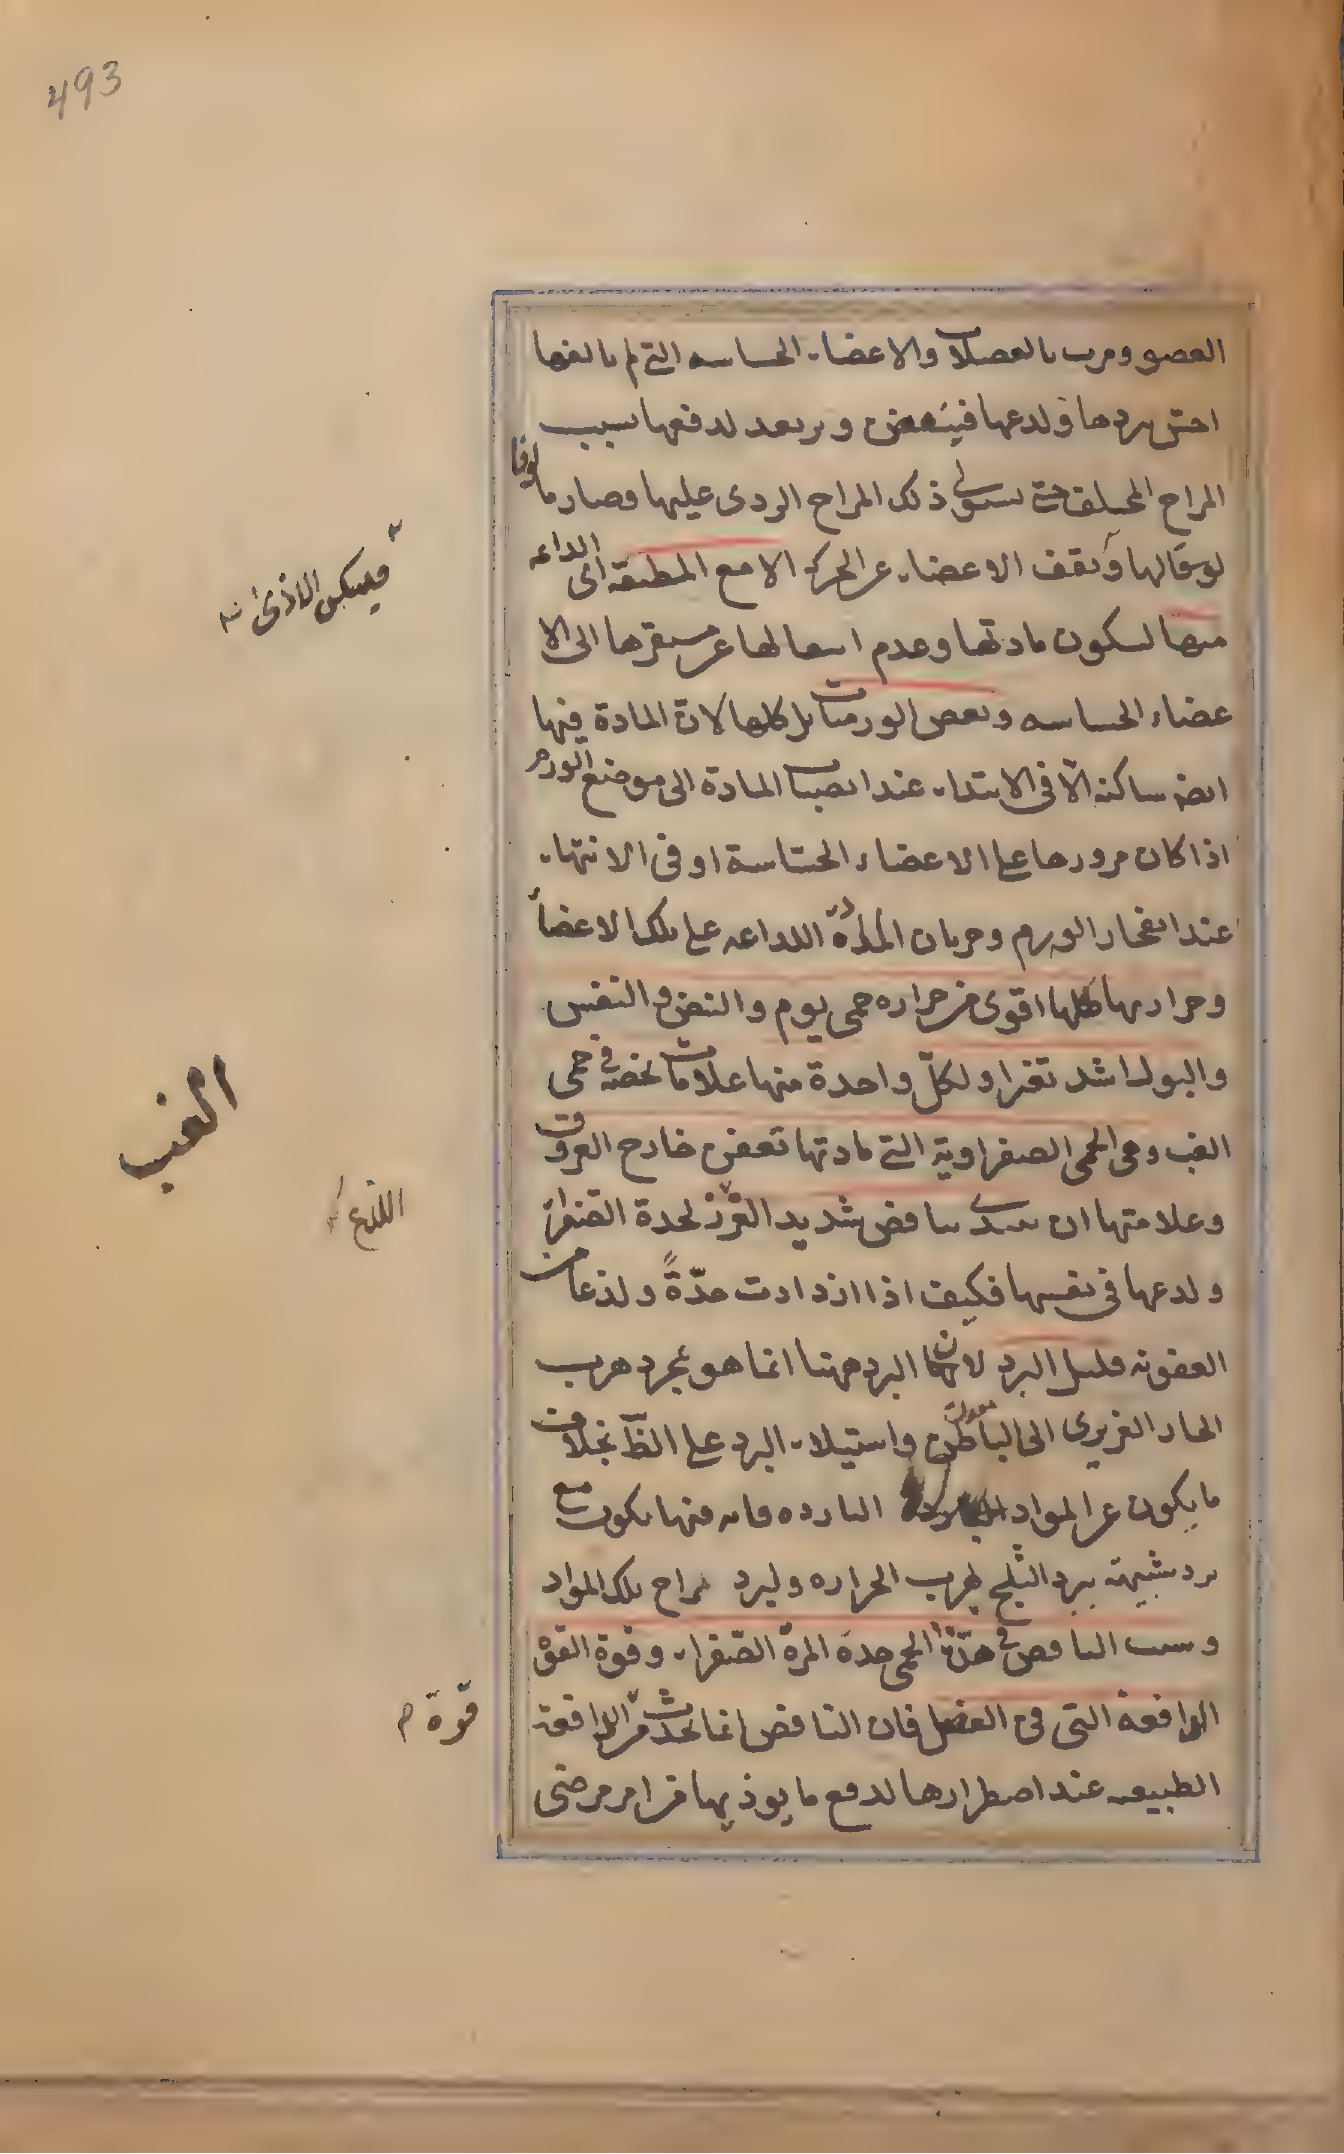 493
العضو ومرت بالعضلات والاعضاء الحساسه التى لم يالفها
احتس ببردها ولدعها فينتفض ويرتعد لدفعها بسبب
المزاج المختلف حتى يستولى ذلك المزاج الردى عليها وصار مالوفا
لها وتقف الاعضاء عن الحركة الا مع المطبقة اى الداعه
منها لسكون مادتها وعدم انتقالها عن مستقرها الى الا
عضاء الحساسه وبعض الورميات بل كلها لان المادة فيها
ايضه ساكنه الا فى الابتداء عند انصباب المادة الى موضع الورم
اذا كان مرورها على الاعضاء الحساسة او فى الانتهاء
عند انفجار الورم وجريان المادة اللداعه على تلك الاعضاء
وحرارتها كلها اقوى من حراره حمى يوم والنبض والنفس
والبول اشد تغيرا ولكل واحدة منها علامات تخصه فى حمى
الغب وهى الحمى الصفراوية التى مادتها تعفن خارج العروق
وعلامتها ان تبتدى بنافض شديد الغرز لحدة الصفراء
ولدعها فى نفسها فكيف اذا ازدادت حدّةً ولذعا من
العفونه قليل البرد لان البرد ههنا انما هو بمجرد هرب
الحار الغريزى الى الباطن واستيلاء البرد على الظ بخلاف
ما يكون عن المواد البارده فانه فيها يكون مع
برد شبيهة ببرد الثلج لهرب الحراره ولبرد مزاج تلك المواد
وسبب النافض فى هذه الحمى حدة المرة الصفراء وقوة القوة
الدافعة التى فى العضل فان النافض انما تحدث من الدافعة
الطبيعيه عند اضطرارها لدفع ما يوذيها من امر مرضى
فيسكن الاذى
الغب
اللذع
قوة م